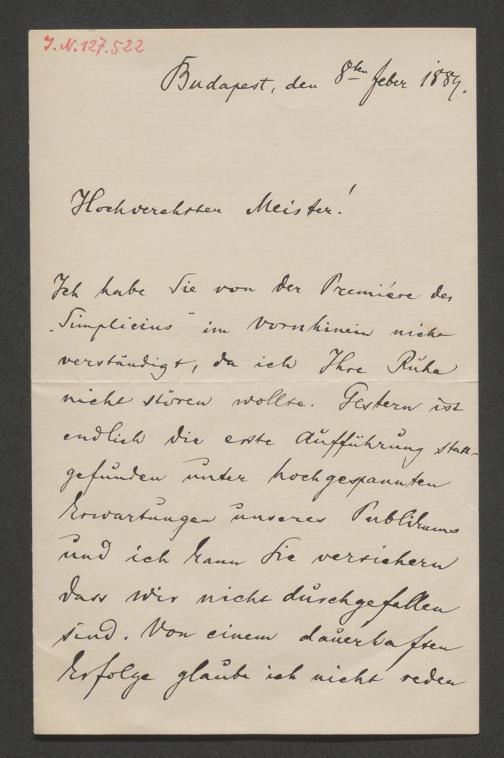 I. N. 127.522
Budapest, den 8ten feber 1889.
Hochverehrter Meister!
Ich habe Sie von der Première des
„Simplicius" im vornhinein nicht
verständigt, da ich Ihre Ruhe
nicht stören wollte. Gestern ist
endlich die erste Aufführung statt-
gefunden unter hochgespannten
Erwartungen unseres Publikums
und ich kann Sie versichern
dass wir nicht durchgefallen
sind. Von einem dauerhaften
Erfolge glaube ich nicht reden